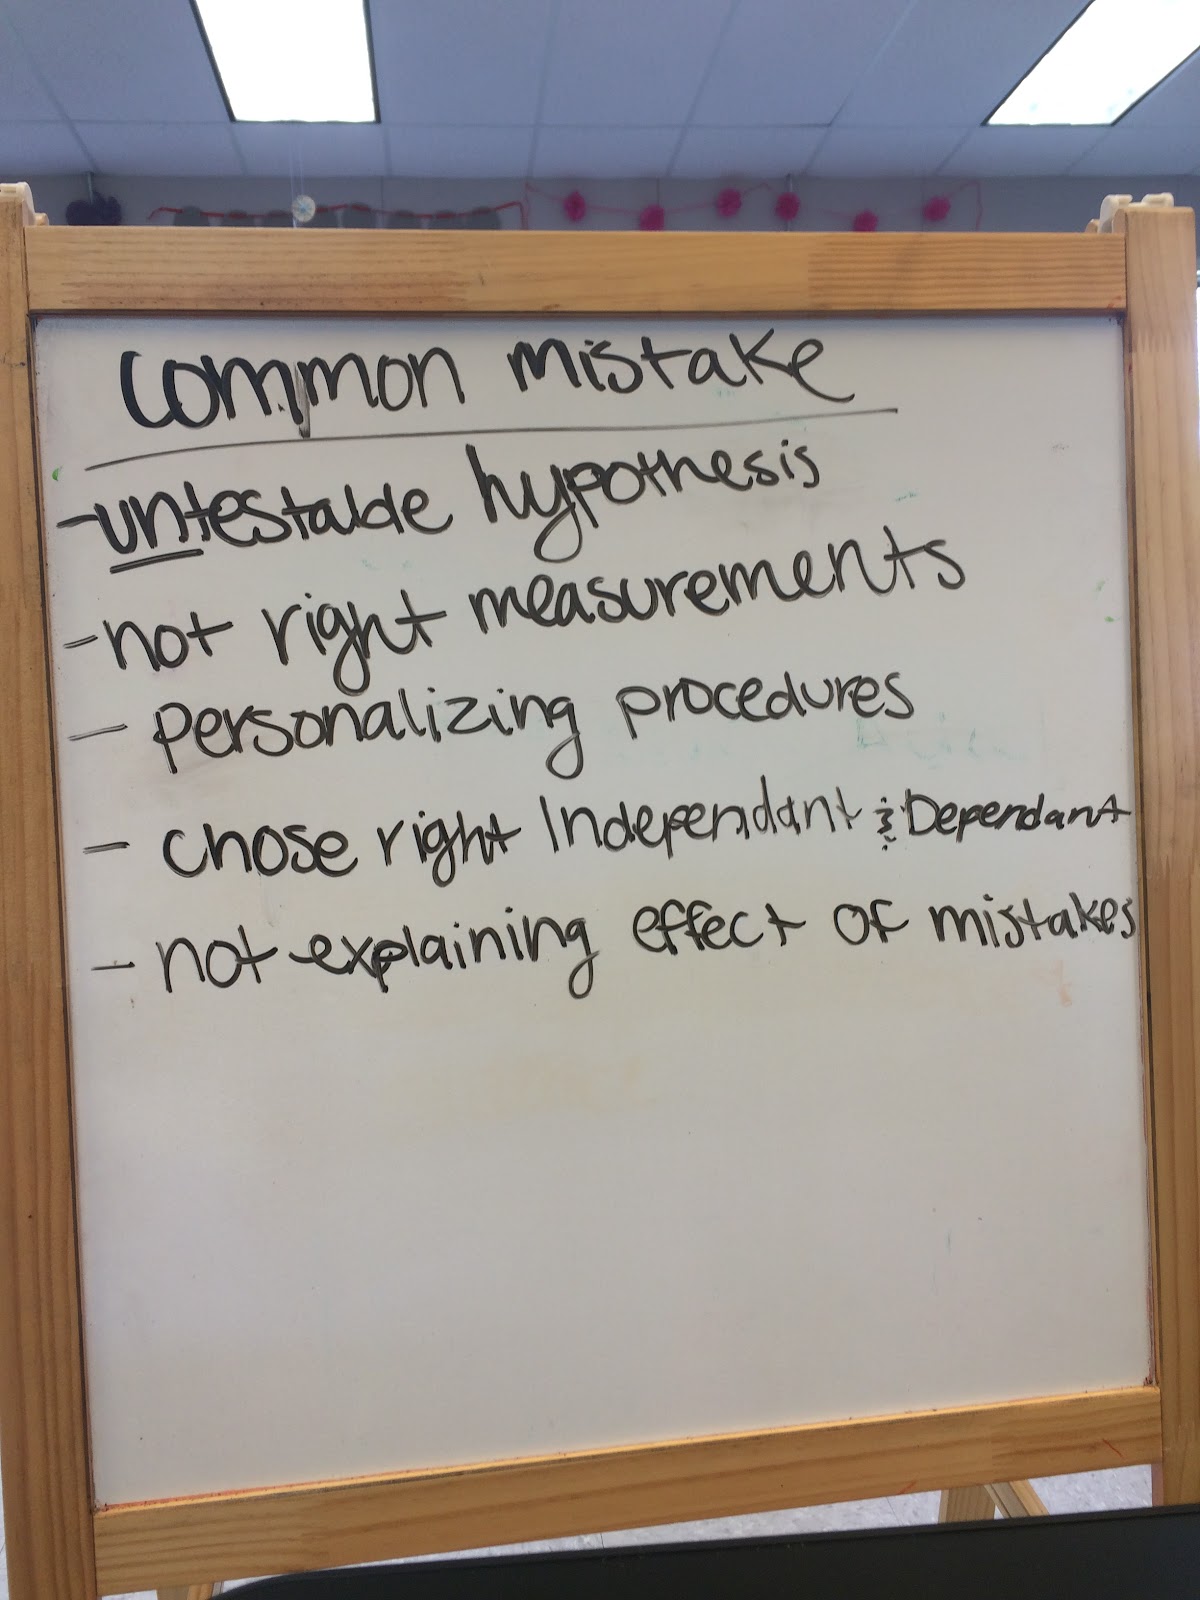 common mistake
-untestable hypothesis
-not right measurements
- personalizing procedures
- chose right Independant & Dependant
- not explaining effect of mistakes